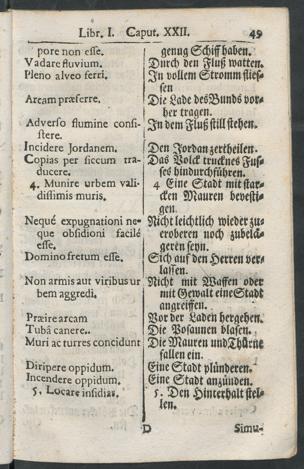 Libr. I. Caput. XXII. 49
pore non esse.
Vadare fluvium.
Pleno alveo ferri.
Arcam præferre.
Adverso flumine consi-
stere.
Incidere Jordanem.
Copias per siccum tra-
ducere.
4. Munire urbem vali-
dissimis muris.
Nequé expugnationi ne-
que obsidioni facilé
esse.
Domino fretum esse.
Non armis aut viribus ur
bem aggredi.
Præire arcam
Tubâ canere.
Muri ac turres concidunt
Diripere oppidum.
Incendere oppidum.
5. Locare insidias.
genug Schiff haben.
Durch den Fluß watten.
In vollem Stromm flies-
sen
Die Lade des Bunds vor-
her tragen.
In dem Fluß still stehen.
Den Jordan zertheilen.
Das Volck trucknes Fus-
ses hindurchführen.
4 Eine Stadt mit star-
cken Mauren bevesti-
gen.
Nicht leichtlich wieder zu-
eroberen noch zubelä-
geren seyn.
Sich auf den Herren ver-
lassen.
Nicht mit Waffen oder
mit Gewalt eine Stadt
angreiffen.
Vor der Laden hergehen.
Die Posaunen blasen.
Die Mauren und Thürne
fallen ein.
Eine Stadt plünderen.
Eine Stadt anzünden.
5. Den Hinterhalt stel-
len.
D Simu-